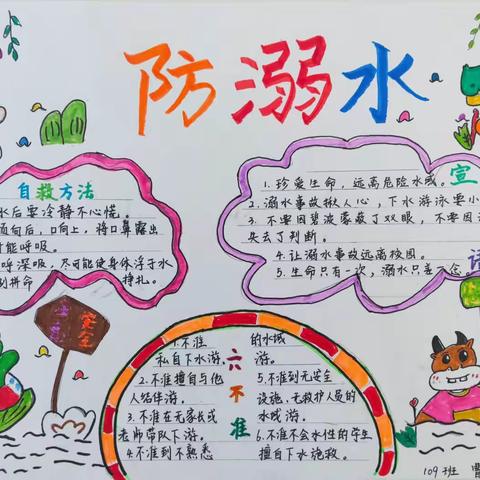 防溺水
自救方法
水后要冷静不心慌。
頂向后，口向上，将口鼻露出
可能呼吸。
呼深吸，尽可能使身体浮于水
拼命挣扎。
宣
1. 珍爱生命，远离危险水域。
2. 溺水事故揪人心，下水游泳要小
3. 不要因碧波蒙蔽了双眼，不要因
失去了判断。
4. 让溺水事故远离校园。
5. 生命只有一次，溺水只差一念
语
安全
六不准
1. 不准
私自下水游。
2. 不准擅自与他
人结伴游。
3. 不准在无家长或
老师带队下游。
4. 不准到不熟悉
的水域
游。
5. 不准到无安全
设施、无救护人员的
水域游。
6. 不准不会水性的学生
擅自下水施救。
109班 曹